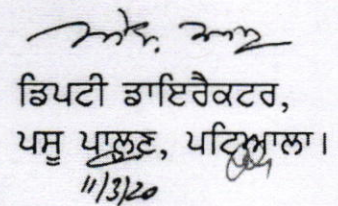 ਡਿਪਟੀ ਡਾਇਰੈਕਟਰ,
ਪਸੂ ਪਾਲਣ, ਪਟਿਆਲਾ।
11/3/20